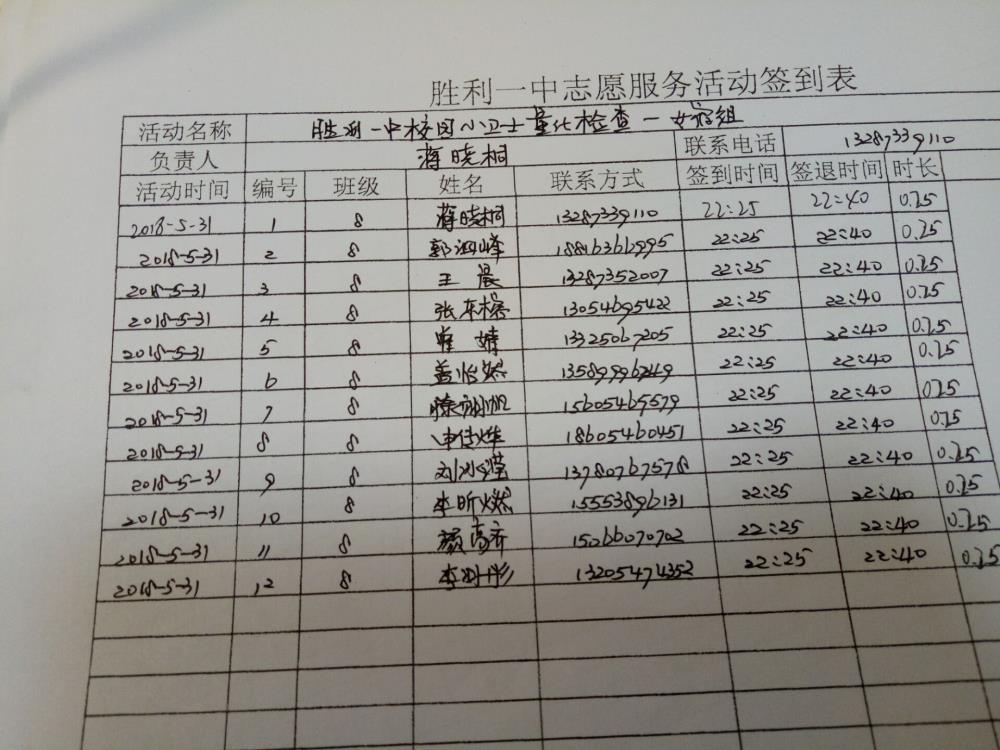 胜利一中志愿服务活动签到表
活动名称 胜利一中校园小卫士量化检查-女宿组
负责人 蒋晓桐 联系电话 13287339110
活动时间 编号 班级 姓名 联系方式 签到时间 签退时间 时长
2018-5-31 1 8 蒋晓桐 13287339110 22:25 22:40 0.25
2018-5-31 2 8 22:25 22:40 0.25
2018-5-31 3 8 王晨 13287352007 22:25 22:40 0.25
2018-5-31 4 8 13054695422 22:25 22:40 0.25
2018-5-31 5 8 13325067205 22:25 22:40 0.25
2018-5-31 6 8 盖怡然 13589996249 22:25 22:40 0.25
2018-5-31 7 8 15605469579 22:25 22:40 0.25
2018-5-31 8 8 18605460451 22:25 22:40 0.25
2018-5-31 9 8 13780767578 22:25 22:40 0.25
2018-5-31 10 8 李昕燃 15553896131 22:25 22:40 0.25
2018-5-31 11 8 15066070702 22:25 22:40 0.25
2018-5-31 12 8 13205474352 22:25 22:40 0.25